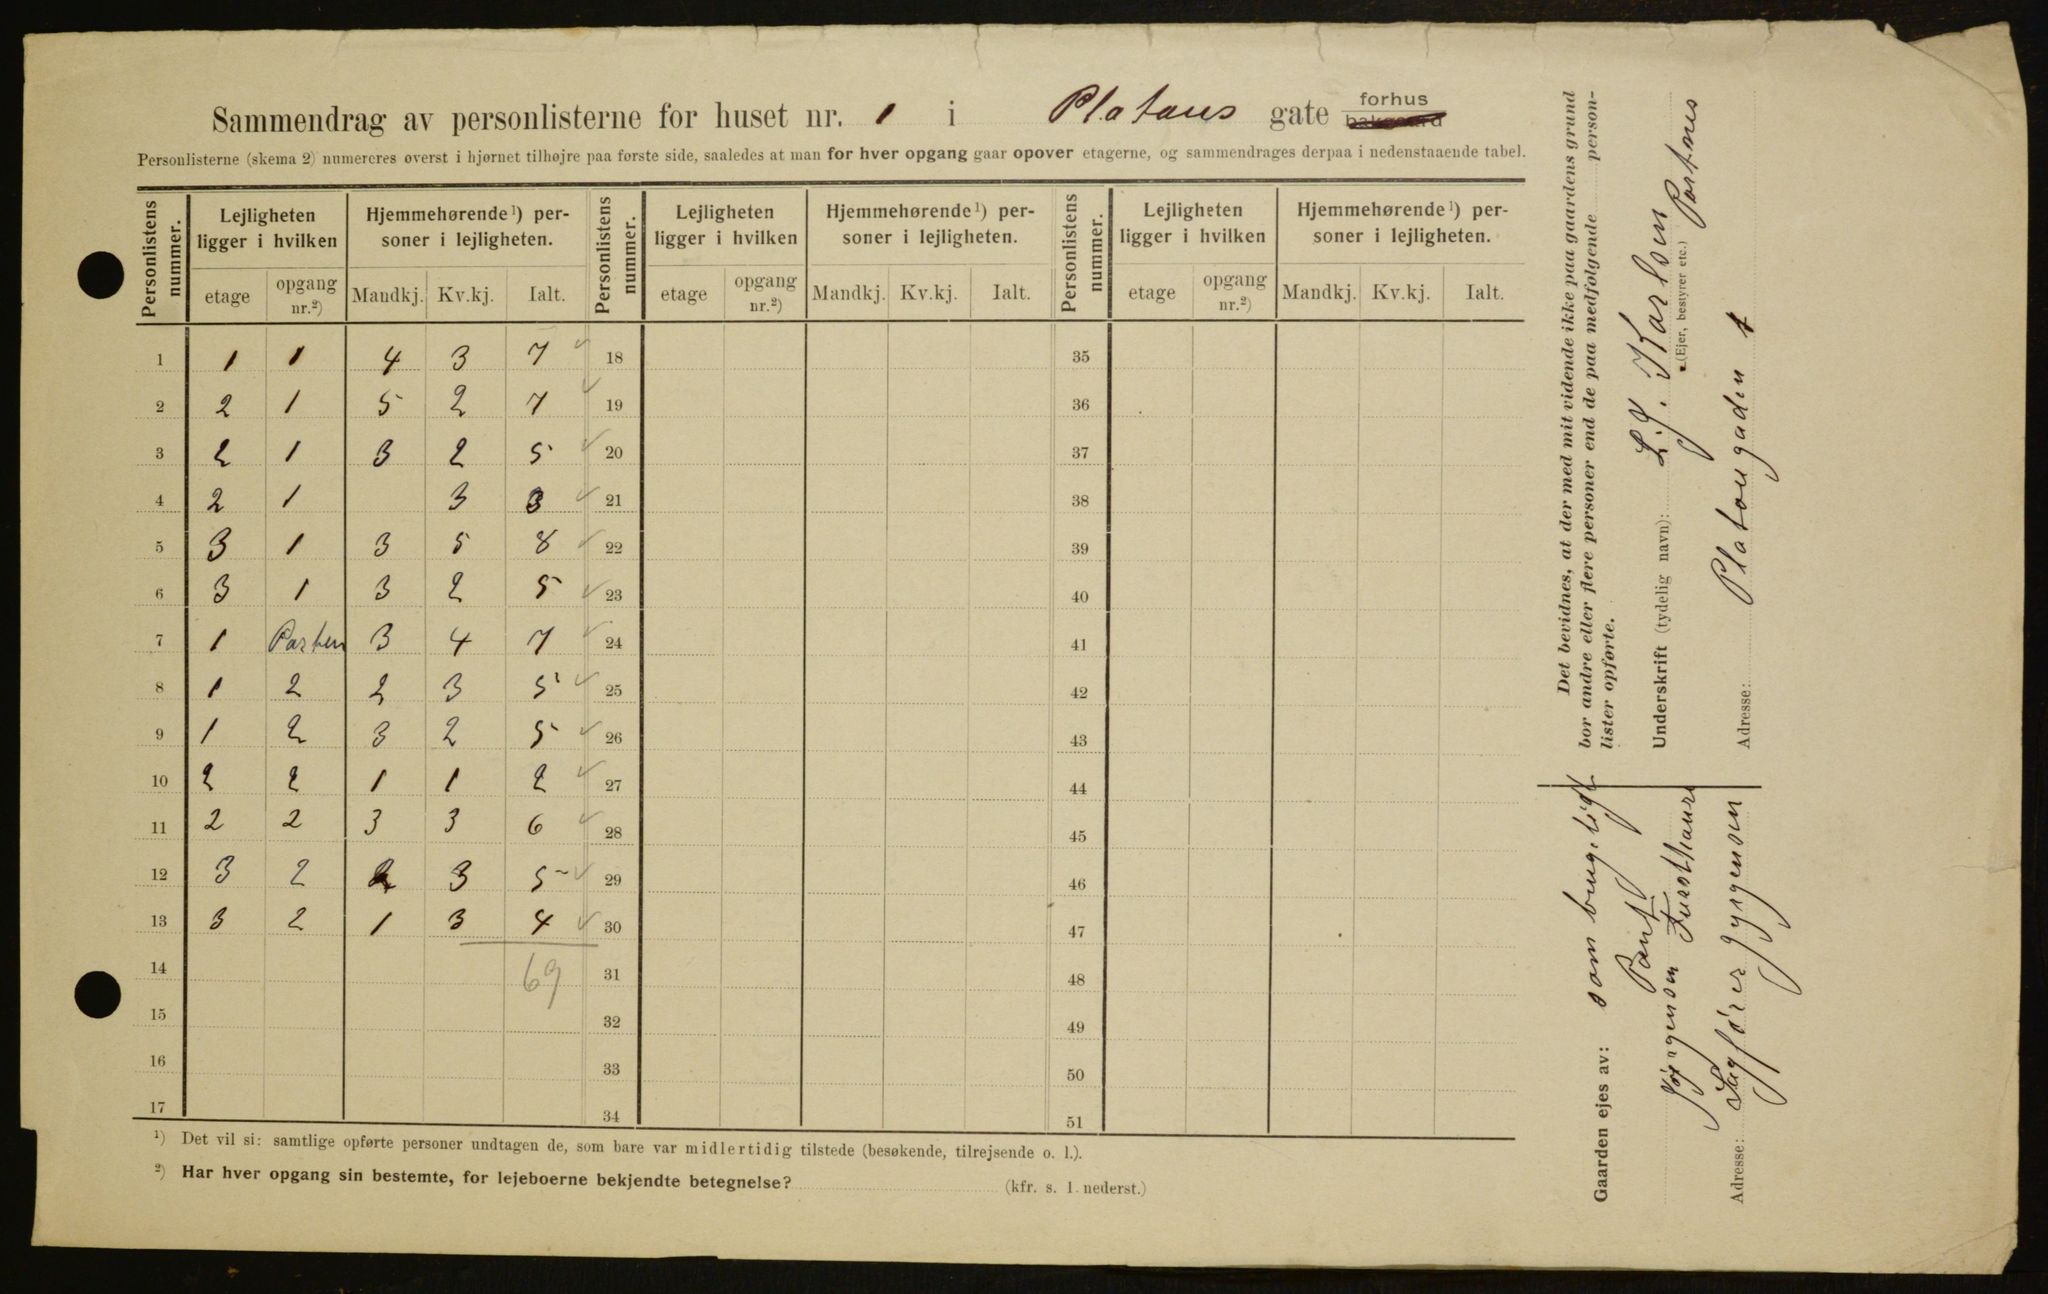 Sammendrag av personlisterne for huset nr. 1 i Platous gate forhus bakgaard
Personlisterne (skema 2) numereres øverst i hjørnet tilhøjre paa første side, saaledes at man for hver opgang gaar opover etagerne, og sammendrages derpaa i nedenstaaende tabel.
Personlistens nummer. Lejligheten ligger i hvilken Hjemmehørende ¹) personer i lejligheten. Personlistens nummer. Lejligheten ligger i hvilken Hjemmehørende ¹) personer i lejligheten. Personlistens nummer. Lejligheten ligger i hvilken Hjemmehørende ¹) personer i lejligheten.
etage opgang nr.²) Mandkj. Kv.kj. Ialt. etage opgang nr.²) Mandkj. Kv.kj. Ialt. etage opgang nr.²) Mandkj. Kv.kj. Ialt.
1 1 1 4 3 7 ✓ 18 35
2 2 1 5 2 7 ✓ 19 36
3 2 1 3 2 5 ✓ 20 37
4 2 1 3 3 ✓ 21 38
5 3 1 3 5 8 ✓ 22 39
6 3 1 3 2 5 ✓ 23 40
7 1 Porten 3 4 7 ✓ 24 41
8 1 2 2 3 5 ✓ 25 42
9 1 2 3 2 5 ✓ 26 43
10 2 2 1 1 2 ✓ 27 44
11 2 2 3 3 6 ✓ 28 45
12 3 2 2 3 5 ✓ 29 46
13 3 2 1 3 4 ✓ 30 47
14 69 31 48
15 32 49
16 33 50
17 34 51
¹) Det vil si: samtlige opførte personer undtagen de, som bare var midlertidig tilstede (besøkende, tilrejsende o. l.).
²) Har hver opgang sin bestemte, for lejeboerne bekjendte betegnelse? (kfr. s. 1 nederst.)
Det bevidnes, at der med mit vidende ikke paa gaardens grund
bor andre eller flere personer end de paa medfølgende personlister opførte.
Underskrift (tydelig navn): L. J. Karlsen Portner
(Ejer, bestyrer etc.)
Adresse: Platougaden 1
Gaarden ejes av: som brugeligt
Pant,
Jørgensen
Adresse: Sagfører Jørgensen